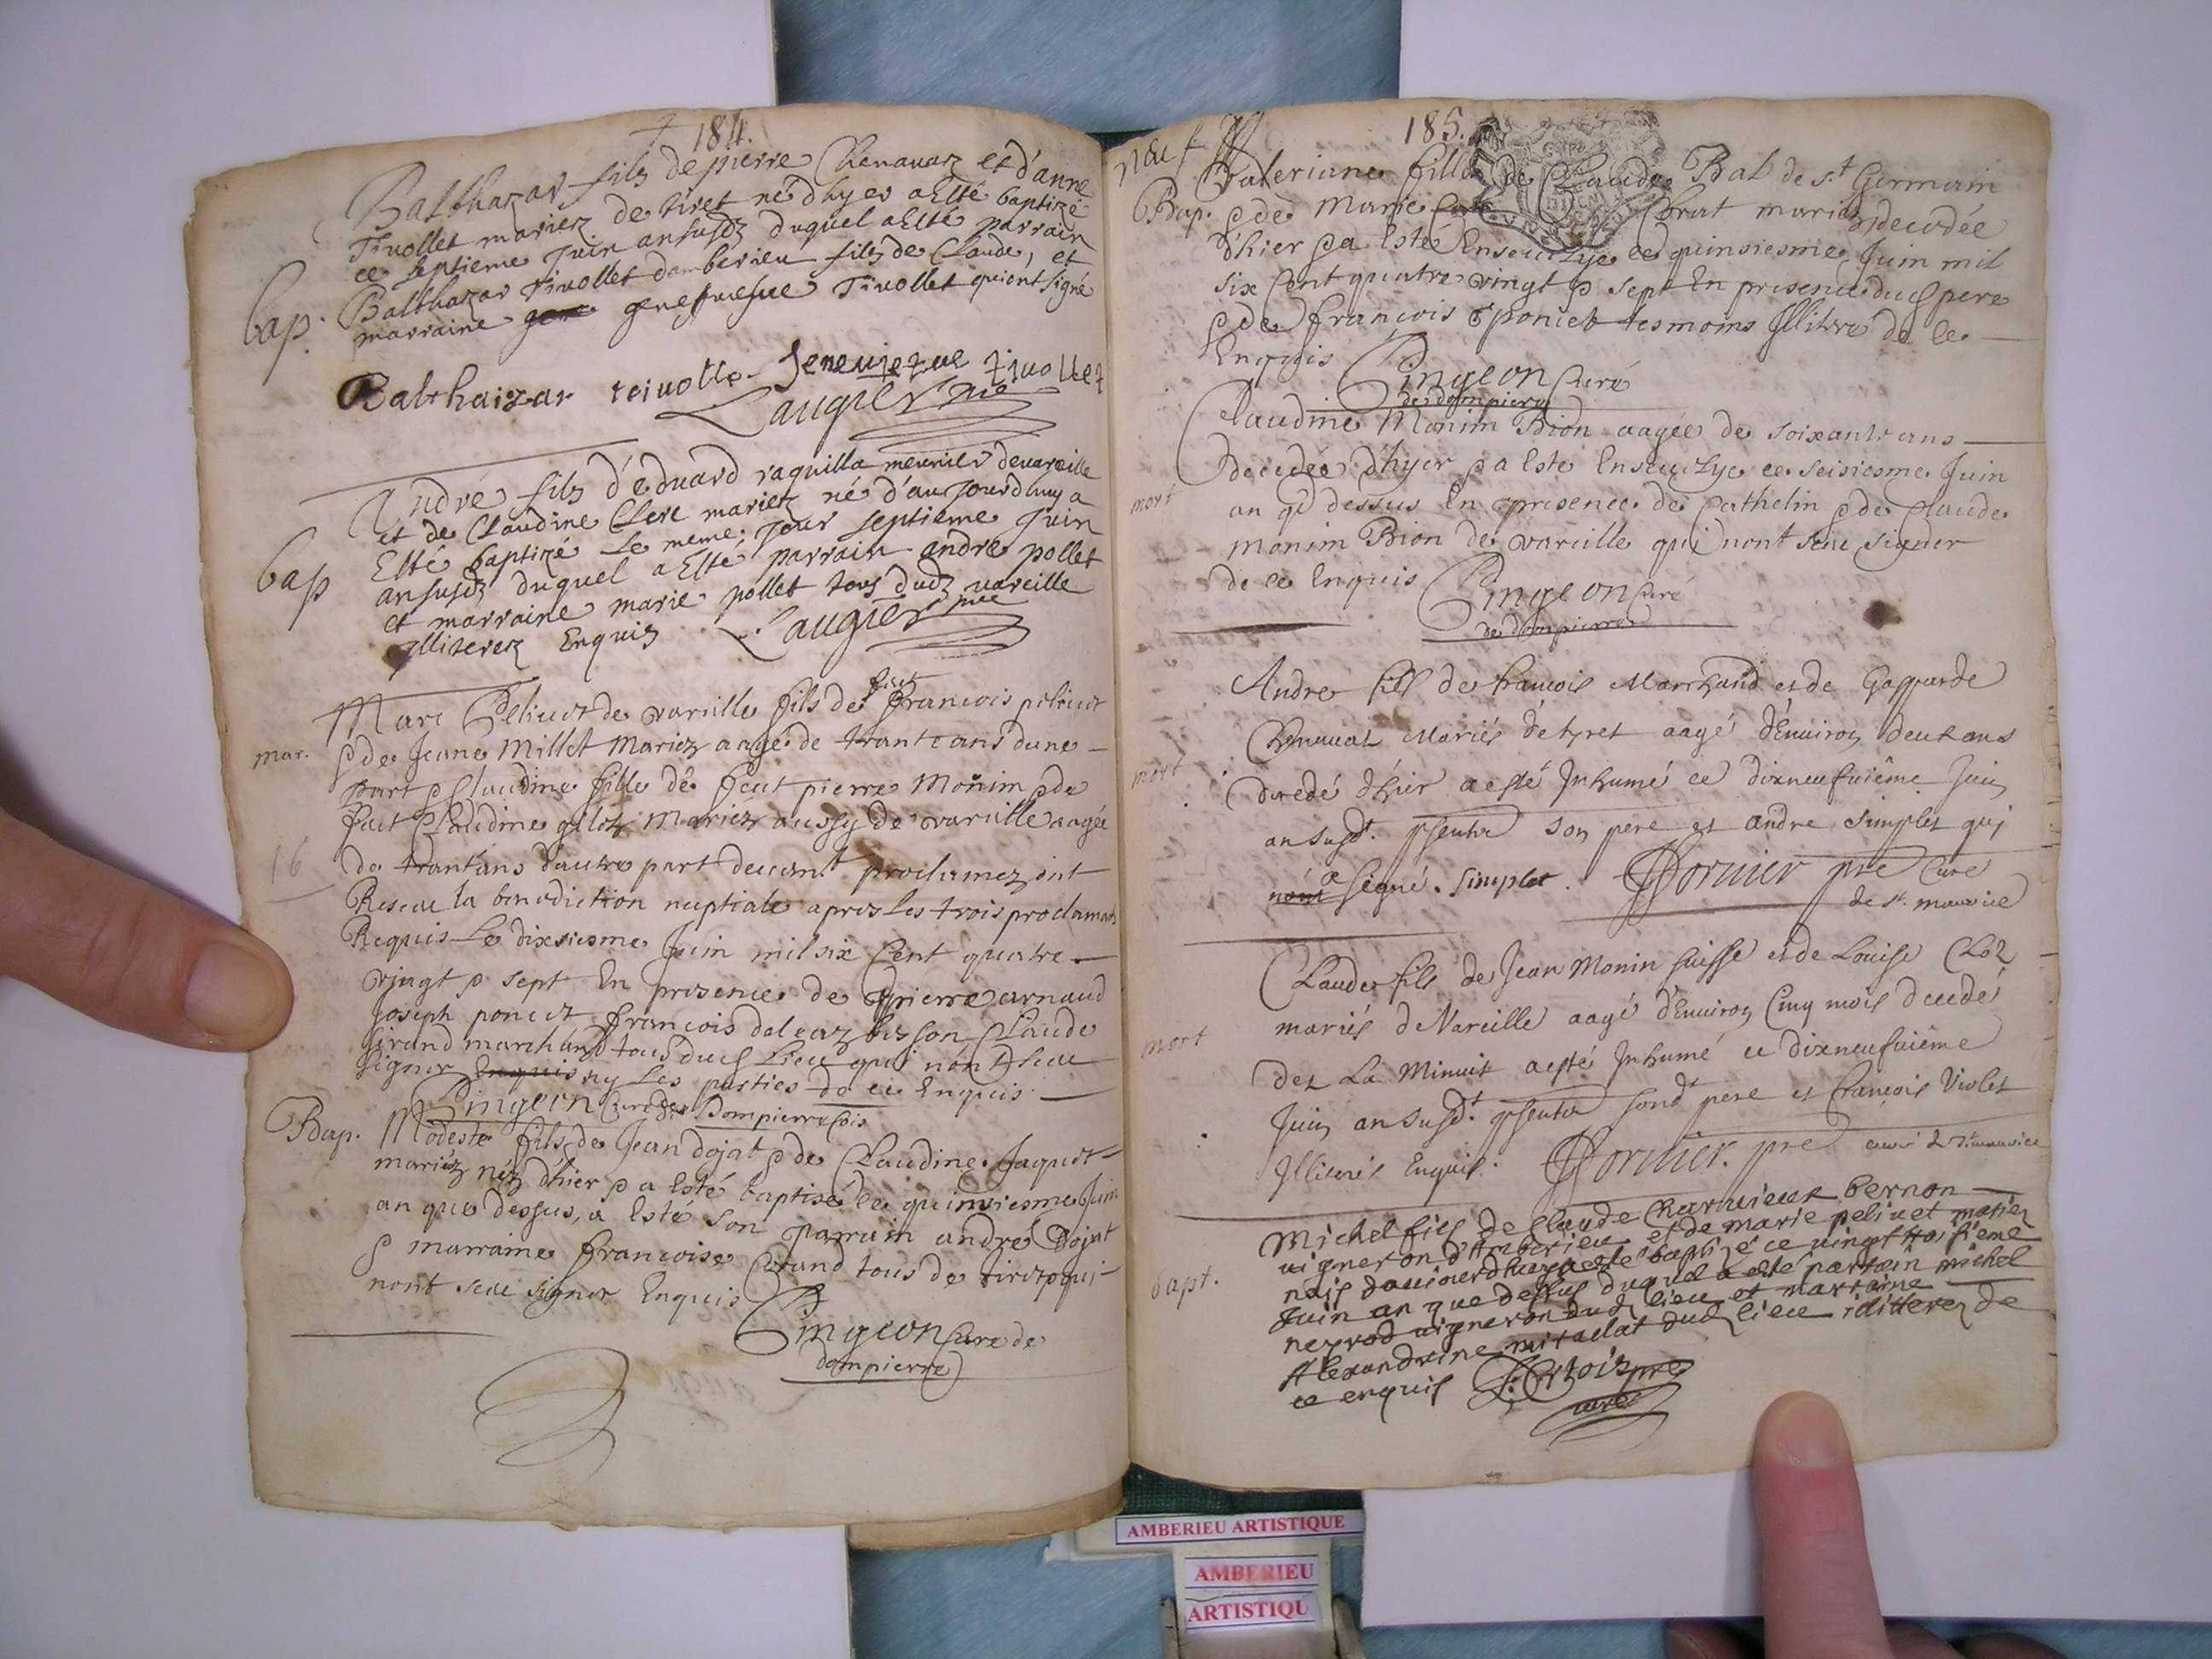 184.
Balthazar filz de pierre Chenavaz et d'anne
Tivollet mariez de tiret né d'hyer a Esté baptizé
ce septieme Juin an susdz duquel a Esté parrain
Balthazar Tivollet damberieu filz de Claude, et
bap. marraine geneviefue Tivollet qui ont signé
Balthaizar teivolle. Jeneviezve tivollet
Laugier pre
André filz d'eduard raquilla meunier de vareille
et de Claudine Clerc mariez né d'aujourdhuy a
Esté baptizé le meme jour septieme Juin
bap an susdz duquel a Esté parrain andre pollet
et marraine marie pollet tous dudz vareille
illiterez Enquis Laugier pre
feu
Marc Pelivet de vareille fils de francois pelivet
mar. & de Jeane Millet Mariez aagé de trante ans dune
part & Claudine fille de feut pierre Monim & de
Claudine gilet Mariez aussy de vareille aagée
16
de trantans dautre part proclamez ont
Reseue la benediction nuptiale apres les trois proclamaõs
Requis Le dixiesme Juin mil six Cent quatre
vingt & sept En presence de pierre arnaud
Joseph poncet françois bisson Claude
marchand tous dud Lieu qui nont seu
signer Enquis ny Les parties de ce Enquis
Pingeon Curé de Dompierre
Bap. Modeste fils de Jean dojat & de Claudine Jaquet
mariéz néz d'hier & a Esté baptisé le quinsiesme Juin
an que dessus, a Esté son parrain andre Dojat
& marraine francoise tous de tiret qui
nont seu signer Enquis
Pingeon Curé de
dompierre
neuf 185.
Valeriane fille de Claude Bal de s.t Germain
Bap. & de Marie mariez decedée
d'hier & a Esté Enseuelye ce quinsiesme Juin mil
six Cent quatre vingt & sept En presence dud pere
& de françois poncet tesmoins Illiteré de ce
Enquis Pingeon Curé
de dompierre
Claudine Monim Bion aagée de soixante ans
decedée d'hyer & a Esté Enseuelye ce seisiesme Juin
mort an que dessus En presence de Cathelin & de Claude
monim Bion de vareille qui nont seu signer
de ce Enquis Pingeon Curé
de dompierre
Andre fils de francois Marchand et de Gasparde
Chenavaz Mariés de tyret aagé d'Enuiron deux ans
mort decedé d'hier a esté Inhumé ce dixneufuiême Juin
an susdt. pnt son pere et andre Simplet qui
nont a signé. Simplet. Dornier pre Curé
de st. maurice
Claude fils de Jean Monin suisse et de Louise
mariés de Vareille aagé d'Enuiron Cinq mois decedé
mort dez La Minuit a esté Inhumé ce dixneufuiême
Juin an susdt. sond pere et francois Violet
Illiterés Enquis. Dornier. pre curé de st. maurice
Michel fils de Claude Charvieux bernon
vigneron d'Amberieu et de marie pelivet mariez
nais daujourdhuy a esté baptizé ce vingt troisieme
bapt. Juin an que dessus duquel a esté parrain michel
neyrod vigneron dudz lieu et marraine
Alexandrine mitallat dudz lieu illitterez de
ce enquis pre
curé
AMBERIEU ARTISTIQUE
AMBERIEU
ARTISTIQU